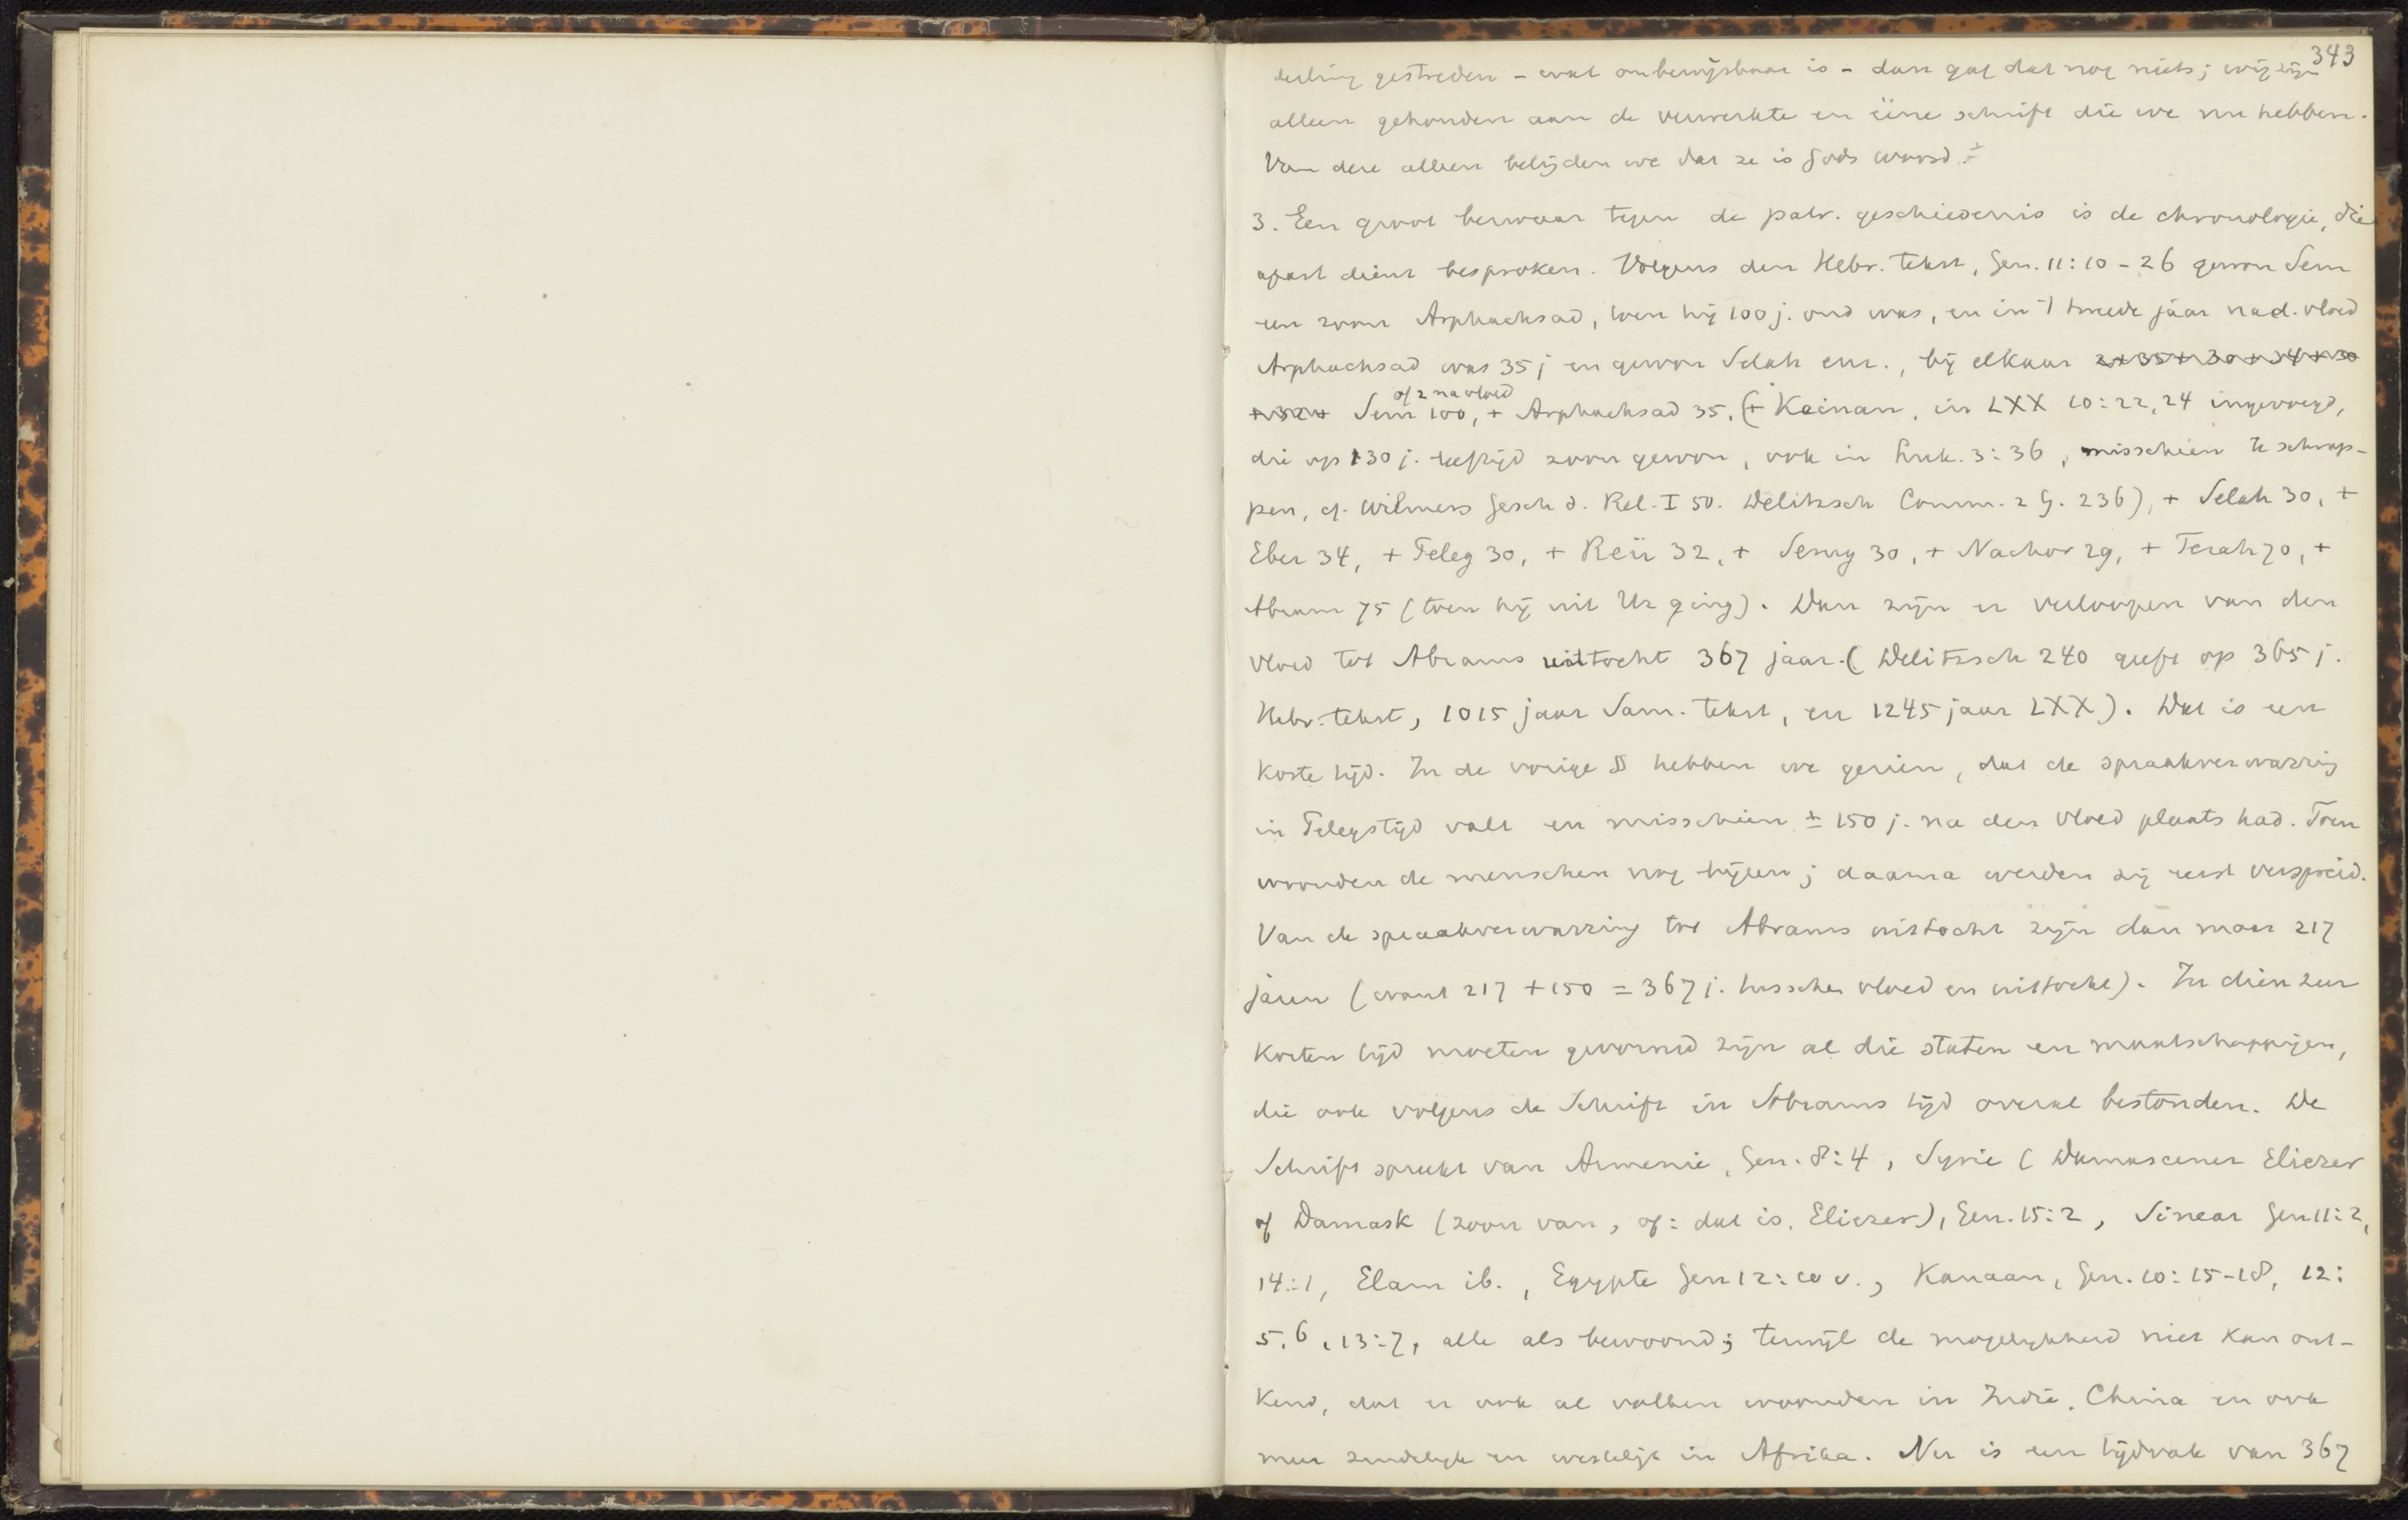 343
deeling gestreden – wat onbewijsbaar is – dan gaf dat nog niets; wij zijn
alleen gehouden aan de verwerkte en ééne schrift die we nu hebben.
Van deze alleen belijden we dat ze is Gods woord.
3. Een groot bezwaar tegen de patr. geschiedenis is de chronologie, die
apart dient besproken. Volgens den Hebr. tekst, Gen. 11:10-26 gewon Sem
een zoon Arphachsad, toen hij 100 j. oud was, en in 't tweede jaar na d. vloed
Arphachsad was 35 j en gewon Selah enz., bij elkaar 2+35+30+34+30
+32+ Sem 100, + Arphachsad 35, (+ Keinan, in LXX 10:22,24 ingevoegd,
of 2 na vloed
die op 130 j. leeftijd zoon gewon, ook in Luk. 3:36, misschien te schrap-
pen, cf. Wilmers Gesch d. Rel. I 50. Delitzsch Comm. z G. 236), + Selah 30, +
Eber 34, + Peleg 30, + Reü 32, + Serug 30, + Nachor 29, + Terah 70, +
Abram 75 (toen hij uit Ur ging). Dan zijn er verloopen van den
vloed tot Abrams uittocht 367 jaar. (Delitzsch 240 geeft op 365 j.
Hebr. tekst, 1015 jaar Sam. tekst, en 1245 jaar LXX). Dat is een
korte tijd. In de vorige § hebben we gezien, dat de spraakverwarring
in Pelegs tijd valt en misschien ± 150 j. na den vloed plaats had. Toen
woonden de menschen nog bijeen; daarna werden zij eerst verspreid.
Van de spraakverwarring tot Abrams uittocht zijn dan maar 217
jaren (want 217 + 150 = 367 j. tusschen vloed en uittocht). In dien zeer
korten tijd moeten gevormd zijn al die staten en maatschappijen,
die ook volgens de Schrift in Abrams tijd overal bestonden. De
Schrift spreekt van Armenie, Gen. 8:4, Syrie (Damascener Eliezer
of Damask (zoon van, of: dat is, Eliezer), Gen. 15:2, Sinear Gen 11:2,
14:1, Elam ib., Egypte Gen 12:10 v., Kanaan, Gen. 10:15-18, 12:
5.6, 13:7, alle als bewoond; terwijl de mogelijkheid niet kan ont-
kend, dat er ook al volken woonden in Indië, China en ook
meer zuidelijk en westelijk in Afrika. Nu is een tijdvak van 367